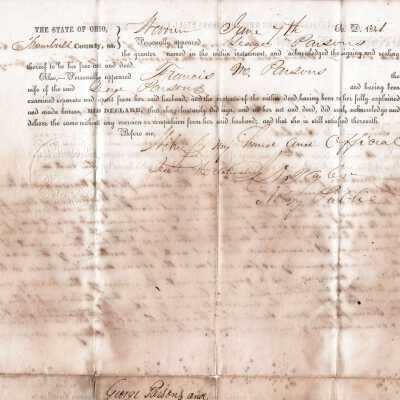 THE STATE OF OHIO, Warren June 7th A. D. 1841
Trumbull County, ss. Personally appeared George Parsons
the grantor named in the within instrument, and acknowledged the signing and sealing
thereof to be free act and deed.
Also,—Personally appeared Francis M. Parsons
wife of the said George Parsons and having been
examined separate and apart from her said husband, and the contents of the within deed having been to her fully explained
and made known, DID DECLARE, that she voluntarily did sign, seal her act and deed, did say acknowledge and
deliver the same without any coercion or compulsion from her said husband, and that she is still satisfied therewith.
Before me,
my hand and Official
Seal
Notary Public
George Parsons and